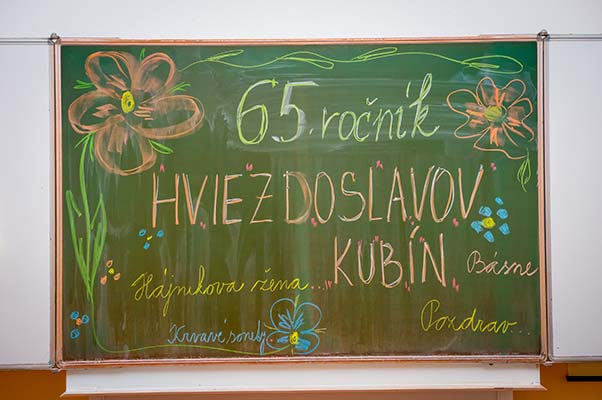 65. ročník
HVIEZDOSLAVOV
KUBÍN
Básne
Hájnikova žena...
Krvavé sonety
Pozdrav...